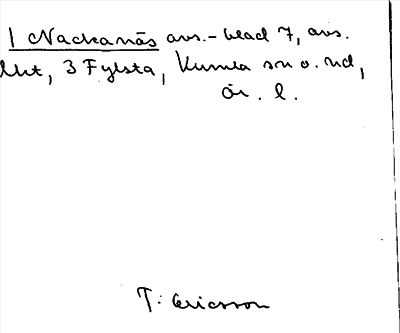 1 Nackanäs avs.-blad 7, avs.
Mt, 3 Fylsta, Kumla sn o. hd,
Ör. l.
T. Ericsson